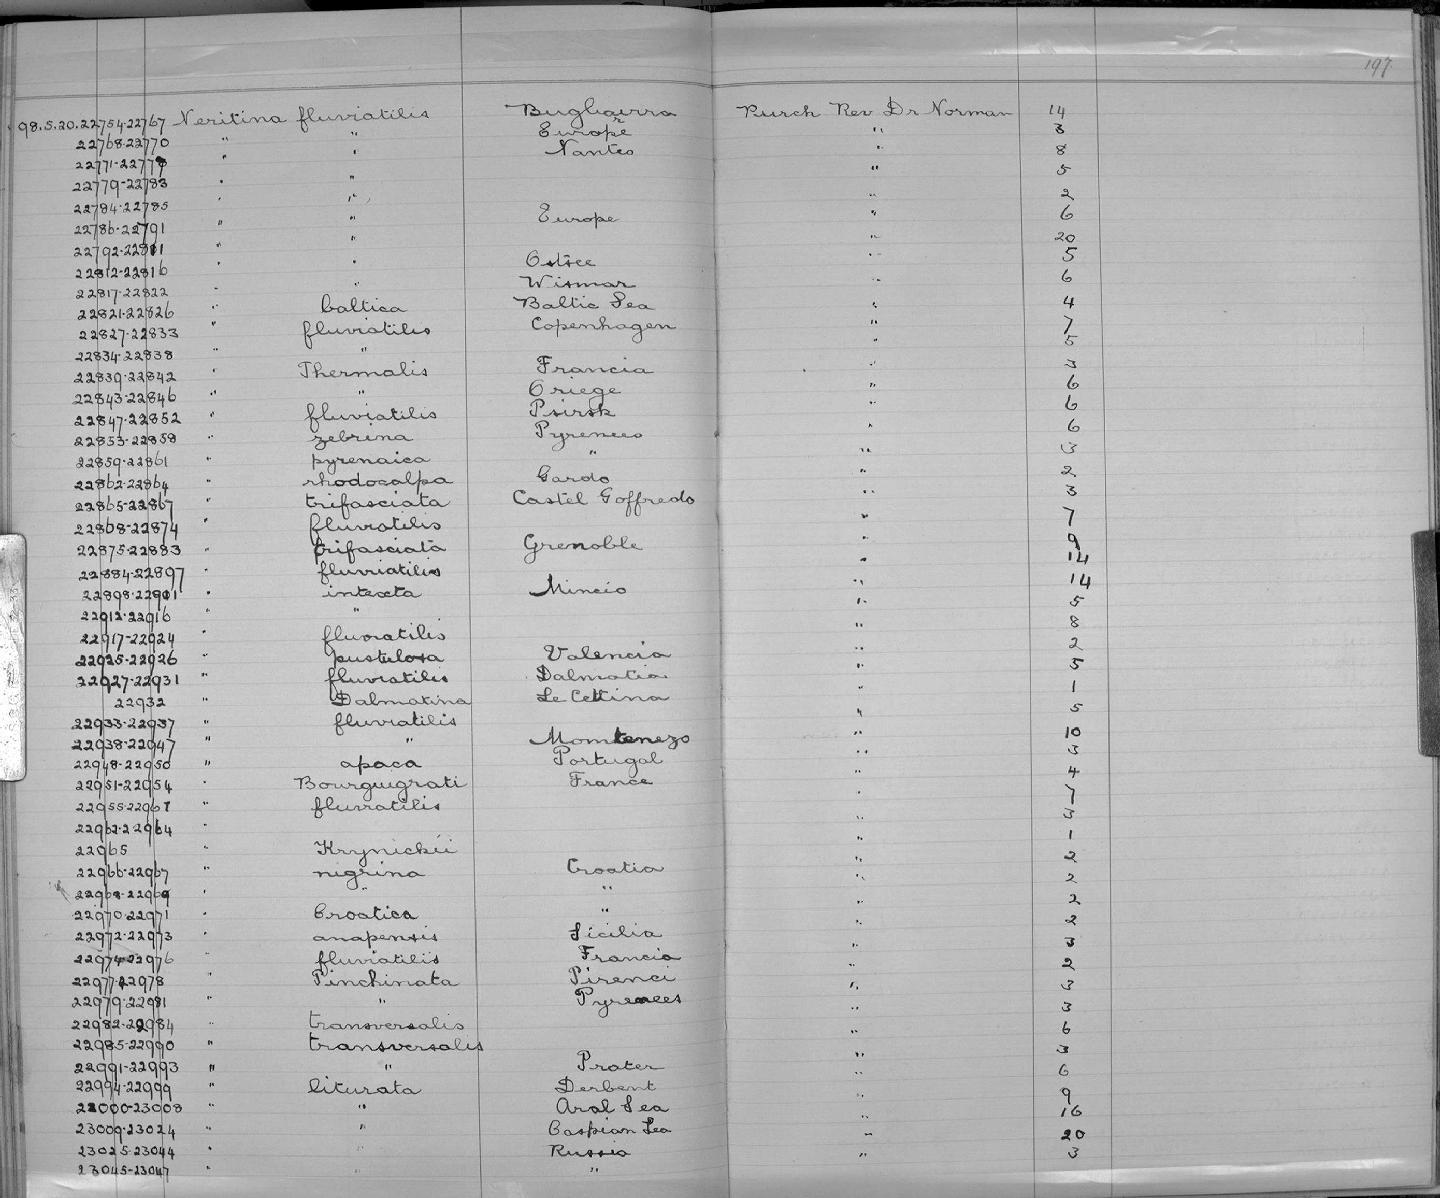 197
98.5.20.22754-22767 Neritina fluviatilis Purch Rev Dr Norman 14
22768-22770 " " Europe " 3
22771-22778 " " Nantes " 8
22779-22783 " " " 5
22784-22785 " " " 2
22786-22791 " " Europe " 6
22792-22811 " " " 20
22812-22816 " " Ostsee " 5
22817-22822 " " Wismar " 6
22821-22826 " baltica Baltic Sea " 4
22827-22833 " fluviatilis Copenhagen " 7
22834-22838 " " " 5
22839-22842 " Thermalis Francia " 3
22843-22846 " " Oriege " 6
22847-22852 " fluviatilis " 6
22853-22858 " zebrina Pyrenees " 6
22859-22861 " pyrenaica " " 3
22862-22864 " Gardo " 2
22865-22867 " trifasciata Castel Goffredo " 3
22868-22874 " fluviatilis " 7
22875-22883 " trifasciata Grenoble " 9
22884-22897 " fluviatilis " 14
22898-22911 " intexta Mincio " 14
22912-22916 " " " 5
22917-22924 " fluviatilis " 8
22925-22926 " pustulosa Valencia " 2
22927-22931 " fluviatilis Dalmatia " 5
22932 " Dalmatina Le Cettina " 1
22933-22937 " fluviatilis " 5
22938-22947 " " " 10
22948-22950 " apaca Portugal " 3
22951-22954 " Bourguigrati France " 4
22955-22961 " fluviatilis " 7
22962-22964 " 3
22965 " Krynickii " 1
22966-22967 " nigrina Croatia " 2
22968-22969 " " " " 2
22970-22971 " Croatica " " 2
22972-22973 " anapensis Sicilia " 2
22974-22976 " fluviatilis Francia " 3
22977-22978 " Pinchinata Pirenci " 2
22979-22981 " " Pyrenees " 3
22982-22984 " transversalis " 3
22985-22990 " transversalis " 6
22991-22993 " " Prater " 3
22994-22999 " liturata Derbent " 6
23000-23008 " " Aral Sea " 9
23009-23024 " " Caspian Sea " 16
23025-23044 " Russia " 20
23045-23047 " " " " 3